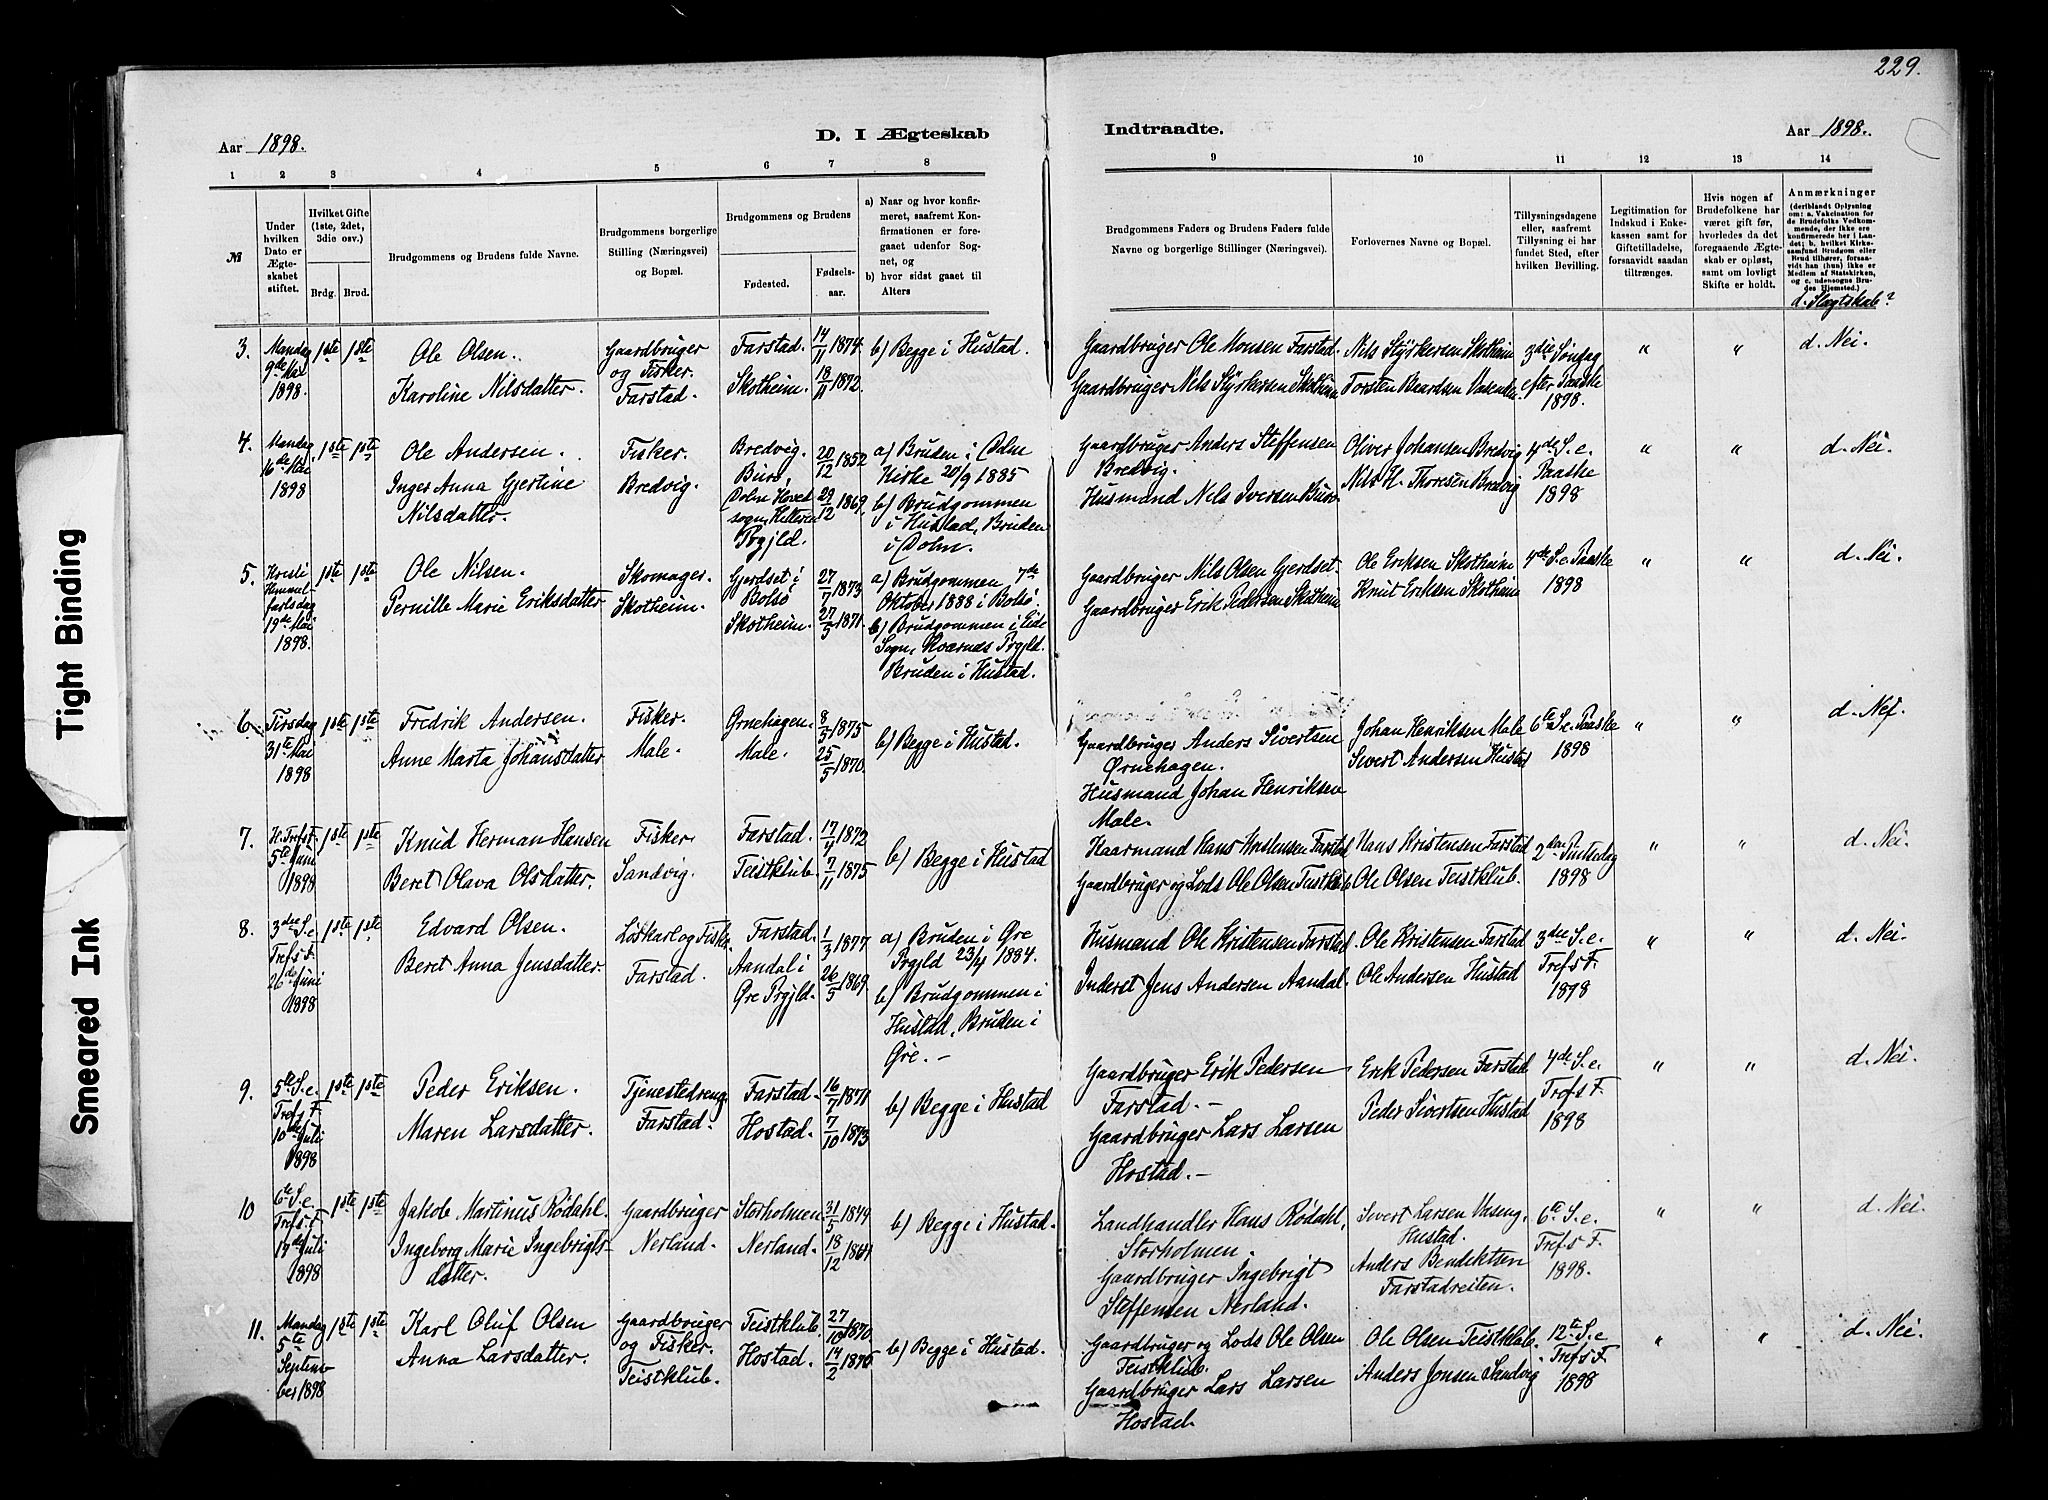 229.
Aar 1898.
D. I Ægteskab
Indtraadte.
Aar 1898.
1 2 3 4 5 6 7 8 9 10 11 12 13 14
№
Under hvilken Dato er Ægteskabet stiftet.
Hvilket Gifte (1ste, 2det, 3die osv.)
Brdg. Brud.
Brudgommens og Brudens fulde Navne.
Brudgommens borgerlige Stilling (Næringsvei) og Bopæl.
Brudgommens og Brudens
Fødested.
Fødselsaar.
a) Naar og hvor konfirmeret, saafremt Konfirmationen er foregaaet udenfor Sognet, og
b) hvor sidst gaaet til Alters
Brudgommens Faders og Brudens Faders fulde Navne og borgerlige Stillinger (Næringsvei).
Forlovernes Navne og Bopæl.
Tillysningsdagene eller, saafremt Tillysning ei har fundet Sted, efter hvilken Bevilling.
Legitimation for Indskud i Enkekassen samt for Giftetilladelse, forsaavidt saadan tiltrænges.
Hvis nogen af Brudefolkene har været gift før, hvorledes da det foregaaende Ægteskab er opløst, samt om lovligt Skifte er holdt.
Anmærkninger
(deriblandt Oplysning om: a. Vakcination for de Brudefolks Vedkommende, der ikke ere konfirmerede her i Landet; b. hvilket Kirkesamfund Brudgom eller Brud tilhører, forsaavidt han (hun) ikke er Medlem af Statskirken, og c. udensogns Brudes Hjemsted.)
d. Slægtskab?
3. Mandag 9de Mai 1898. 1ste 1ste
Ole Olsen.
Karoline Nilsdatter.
Gaardbruger og Fisker. Farstad.
Farstad. 14/11 1874.
Skotheim. 18/11 1872.
b) Begge i Hustad.
Gaardbruger Ole Monsen Farstad.
Gaardbruger Nils Styrkersen Skotheim
Nils Styrkersen Skotheim
Torsten Beardsen
3die Søndag efter Paaske 1898.
" " d. Nei.
4. Mandag 16de Mai 1898 1ste 1ste
Ole Andersen.
Inger Anna Gjertine Nilsdatter.
Fisker. Bredvig.
Bredvig. 20/12 1852
Burø, Dolm Hovedsogn, Hitteren Prgjld. 29/12 1869.
a) Bruden i Dolm Kirke 20/9 1885
b) Brudgommen i Hustad, Bruden i Dolm.
Gaardbruger Anders Steffensen Bredvig.
Husmand Nils Iversen Burø
Oliver Johansen Bredvig
Nils H. Thoresen Bredvig
4de S. e. Paaske 1898
" " d. Nei.
5. Kristi Himmelfartsdag 19de Mai 1898. 1ste 1ste
Ole Nilsen.
Pernille Marie Eriksdatter
Skomager. Skotheim.
Gjerdset i Bolsø 27/7 1873
Skotheim. 27/5 1871.
a) Brudgommen 7de Oktober 1888 i Bolsø.
b) Brudgommen i Eide Sogn, Kværnes Prgjld. Bruden i Hustad.
Gaardbruger Nils Olsen Gjerdset.
Gaardbruger Erik Pedersen Skotheim
Ole Eriksen Skotheim
Knut Eriksen Skotheim
4de S. e. Paaske 1898
" " d. Nei.
6. Tirsdag 31te Mai 1898 1ste 1ste
Fredrik Andersen.
Anne Marta Johansdatter
Fisker. Male.
Ørnehagen. 8/5 1875
Male. 25/5 1870.
b) Begge i Hustad.
Gaardbruger Anders Sivertsen Ørnehagen.
Husmand Johan Henriksen Male.
Johan Henriksen Male
Sivert Andersen Hustad
6te S. e. Paaske 1898
" " d. Nei.
7. H. Tref. F. 5te Juni 1898 1ste 1ste
Knud Herman Hansen
Beret Olava Olsdatter.
Fisker. Sandvig.
Farstad. 17/4 1872
Teistklub. 7/11 1875
b) Begge i Hustad
Kaarmand Hans Kristensen Farstad
Gaardbruger og Lods Ole Olsen Teistklub
Hans Kristensen Farstad
Ole Olsen Teistklub.
2den Pintsedag 1898
" " d. Nei.
8. 3die S. e. Tref. s F. 26de Juni 1898 1ste 1ste
Edvard Olsen.
Beret Anna Jensdatter.
Løskarl og Fisker. Farstad.
Farstad. 1/3 1877
Aandal i Gre Prgjld. 26/5 1869.
a) Bruden i Gre Prgjld 23/4 1884.
b) Brudgommen i Hustad, Bruden i Gre. -
Husmand Ole Kristensen Farstad.
Inderst Jens Andersen Aandal.
Ole Kristensen Farstad
Ole Andersen Hustad
3die S. e. Tref. s F. 1898
" " d. Nei.
9. 5te S. e. Tref s F. 10de Juli 1898 1ste 1ste
Peder Eriksen.
Maren Larsdatter.
Tjenestedreng Farstad.
Farstad. 16/7 1871
Hostad. 7/10 1873
b) Begge i Hustad
Gaardbruger Erik Pedersen Farstad. -
Gaardbruger Lars Larsen Hostad. -
Erik Pedersen Farstad
Peder Sivertsen Hustad
4de S. e. Tref s F. 1898
" " d. Nei.
10 6te S. e. Tref s F. 17de Juli 1898 1ste 1ste
Jakob Martinus Rødahl.
Ingeborg Marie Ingebrigtsdatter.
Gaardbruger Nerland.
Storholmen. 31/5 1844
Nerland. 18/12
b) Begge i Hustad.
Landhandler Hans Rødahl, Storholmen.
Gaardbruger Ingebrigt Steffensen Nerland.
Sivert Larsen Vaseng, Hustad.
Anders Bendiktsen Farstadreiten.
6te S. e. Tref. s F. 1898.
" " d. Nei.
11. Mandag 5te September 1898 1ste 1ste
Karl Oluf Olsen
Anna Larsdatter.
Gaardbruger og Fisker. Teistklub.
Teistklub. 27/10 1870.
Hostad. 14/2 1876
b) Begge i Hustad.
Gaardbruger og Lods Ole Olsen Teistklub.
Gaardbruger Lars Larsen Hostad.
Ole Olsen Teistklub.
Anders Jonsen Sandvig
12te S. e. Tref s F. 1898
" " d. Nei.
Tight Binding
Smeared Ink